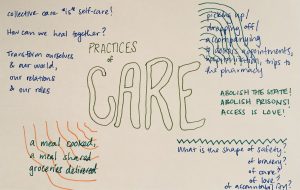 collective care "is" self-care!
How can we heal together?
Transform ourselves
& our world,
our relations
& our roles
PRACTICES
of
CARE
picking up/
dropping off/
accompanying
appointments,
trips to
the pharmacy
ABOLISH THE STATE!
ABOLISH PRISONS!
ACCESS IS LOVE!
a meal cooked,
a meal shared
groceries delivered
What is the shape of safety?
of bravery?
of care?
of love?
of accountability?